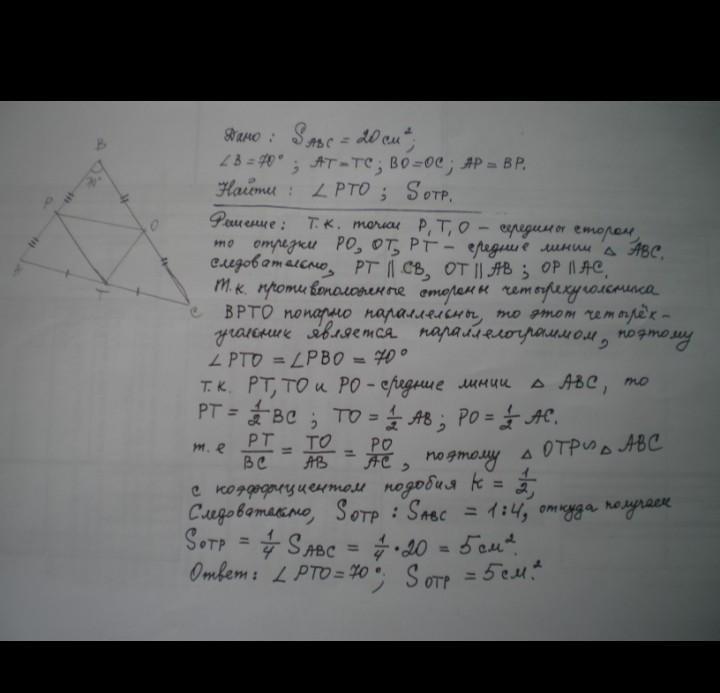 B
70°
P
O
T
C
Дано: S_ABC = 20 см²;
∠B = 70°; AT = TC; BO = OC; AP = BP.
Найти: ∠PTO; S_OTP.
Решение: Т.к. точки P, T, O – середины сторон,
то отрезки PO, OT, PT – средние линии △ ABC.
следовательно, PT ∥ CB, OT ∥ AB; OP ∥ AC.
Т.к. противоположные стороны четырехугольника
BPTO попарно параллельны, то этот четырёх-
угольник является параллелограммом, поэтому
∠PTO = ∠PBO = 70°
т.к. PT, TO и PO – средние линии △ ABC, то
PT = 1/2 BC; TO = 1/2 AB; PO = 1/2 AC.
т.е PT/BC = TO/AB = PO/AC, поэтому △ OTP ∽ △ ABC
с коэффициентом подобия K = 1/2,
Следовательно, S_OTP : S_ABC = 1:4, откуда получаем
S_OTP = 1/4 S_ABC = 1/4 · 20 = 5 см².
Ответ: ∠PTO = 70°; S_OTP = 5 см².